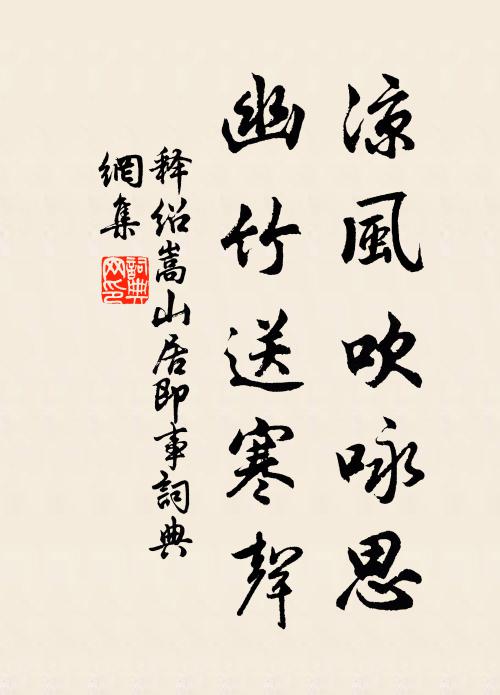 涼風吹咏思
幽竹送寒聲
释绍嵩山居即事詞典
網集
詞典
网印